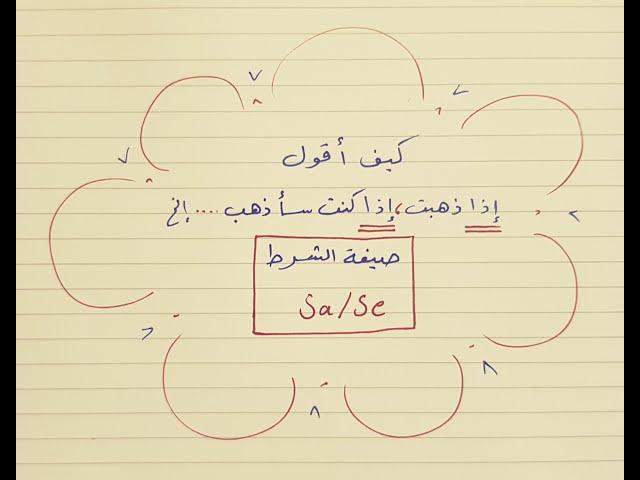 كيف أقول
إذا ذهبت، إذا كنت سأذهب .... إلخ
صيغة الشرط
Sa/Se